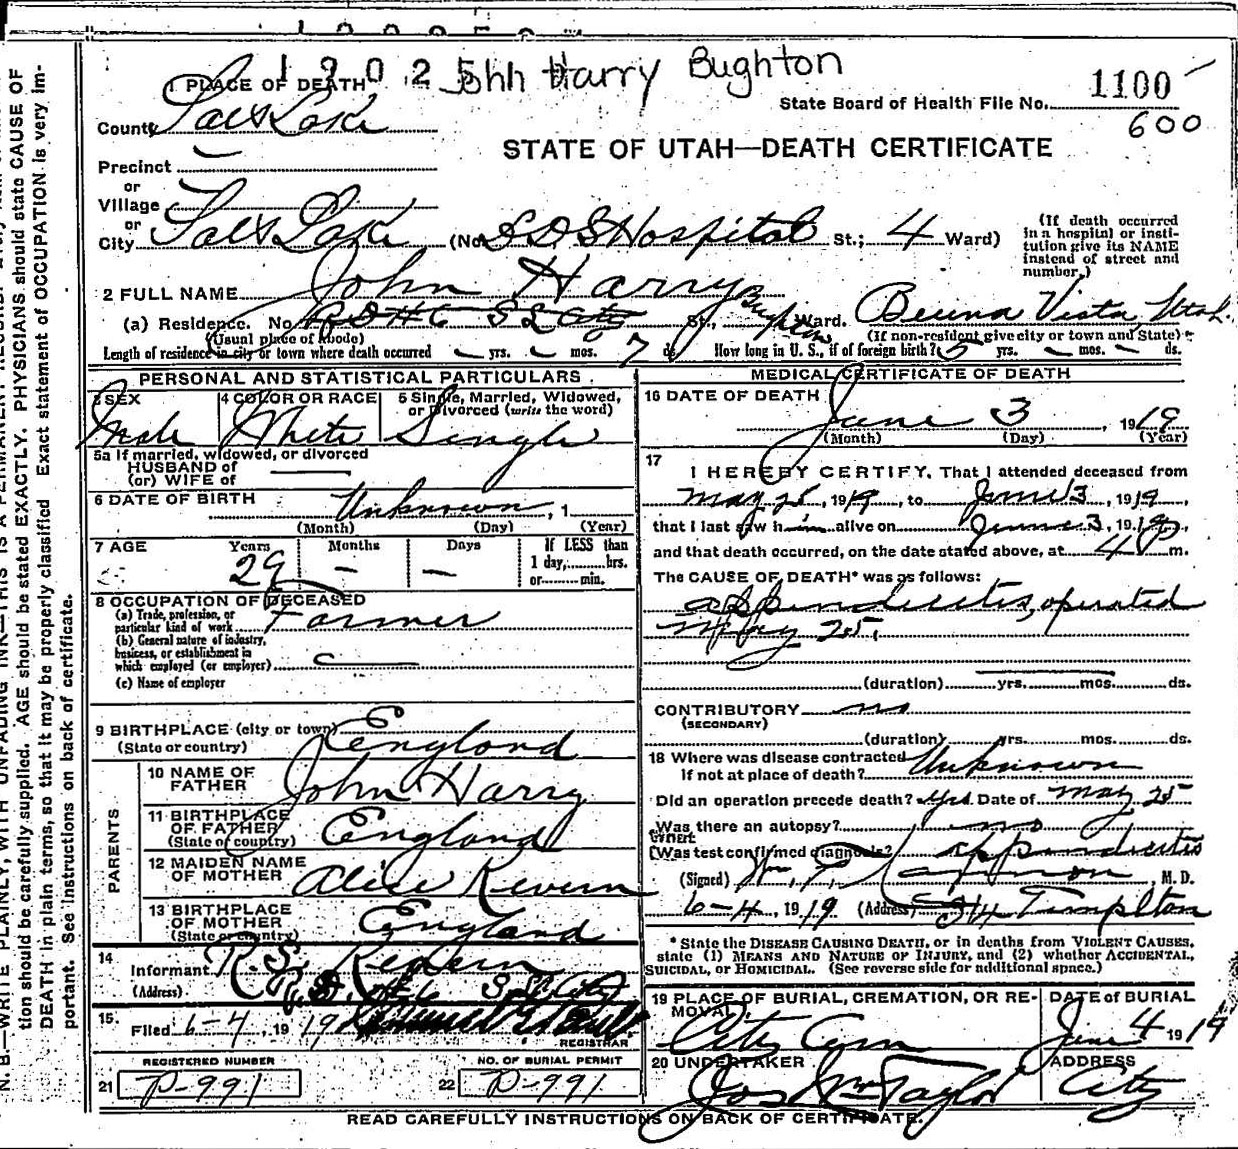 1 9 0 2 5 John Harry Bughton
1 PLACE OF DEATH
State Board of Health File No. 1100
600
County Salt Lake
STATE OF UTAH—DEATH CERTIFICATE
Precinct
or
Village
or
City Salt Lake (No. LDS Hospital St.; 4 Ward)
(If death occurred in a hospital or institution give its NAME instead of street and number.)
2 FULL NAME John Harry Bughton
(a) Residence. No. St., Ward. Buena Vista, Utah.
(Usual place of abode) (If non-resident give city or town and State)
Length of residence in city or town where death occurred — yrs. — mos. 7 ds. How long in U. S., if of foreign birth? 5 yrs. — mos. — ds.
PERSONAL AND STATISTICAL PARTICULARS
3 SEX Male
4 COLOR OR RACE White
5 Single, Married, Widowed, or Divorced (write the word) Single
5a If married, widowed, or divorced
HUSBAND of
(or) WIFE of
6 DATE OF BIRTH Unknown, 1
(Month) (Day) (Year)
7 AGE Years 29 Months — Days —
If LESS than 1 day, hrs. or min.
8 OCCUPATION OF DECEASED
(a) Trade, profession, or particular kind of work Farmer
(b) General nature of industry, business, or establishment in which employed (or employer)
(c) Name of employer
9 BIRTHPLACE (city or town) England
(State or country)
PARENTS
10 NAME OF FATHER John Harry
11 BIRTHPLACE OF FATHER England
(State or country)
12 MAIDEN NAME OF MOTHER Alice Kevern
13 BIRTHPLACE OF MOTHER England
(State or country)
14
Informant R. S. Kevern
(Address) City
15. Filed 6-4, 1919
REGISTRAR
REGISTERED NUMBER
21 P-991
NO. OF BURIAL PERMIT
22 P-991
MEDICAL CERTIFICATE OF DEATH
16 DATE OF DEATH
June 3, 1919
(Month) (Day) (Year)
17
I HEREBY CERTIFY, That I attended deceased from
May 25, 1919, to June 3, 1919,
that I last saw him alive on June 3, 1919,
and that death occurred, on the date stated above, at 4 P m.
The CAUSE OF DEATH* was as follows:
appendicitis, operated
May 25,
(duration) yrs. mos. ds.
CONTRIBUTORY no
(SECONDARY)
(duration) yrs. mos. ds.
18 Where was disease contracted
If not at place of death? Unknown
Did an operation precede death? Yes Date of May 25
Was there an autopsy? no
What
(Was test confirmed diagnosis? appendicitis
(Signed) Wm. M. D.
6-4, 1919 (Address) 314 Templton
* State the DISEASE CAUSING DEATH, or in deaths from VIOLENT CAUSES,
state (1) MEANS AND NATURE OF INJURY, and (2) whether ACCIDENTAL,
SUICIDAL, or HOMICIDAL. (See reverse side for additional space.)
19 PLACE OF BURIAL, CREMATION, OR REMOVAL
City Cem
DATE of BURIAL
June 4 1919
20 UNDERTAKER
Jos Wm Taylor
ADDRESS
City
READ CAREFULLY INSTRUCTIONS ON BACK OF CERTIFICATE.
N. B.—WRITE PLAINLY, WITH UNFADING INK—THIS IS A PERMANENT RECORD.
tion should be carefully supplied. AGE should be stated EXACTLY. PHYSICIANS should state CAUSE OF
DEATH in plain terms, so that it may be properly classified Exact statement of OCCUPATION is very im-
portant. See instructions on back of certificate.